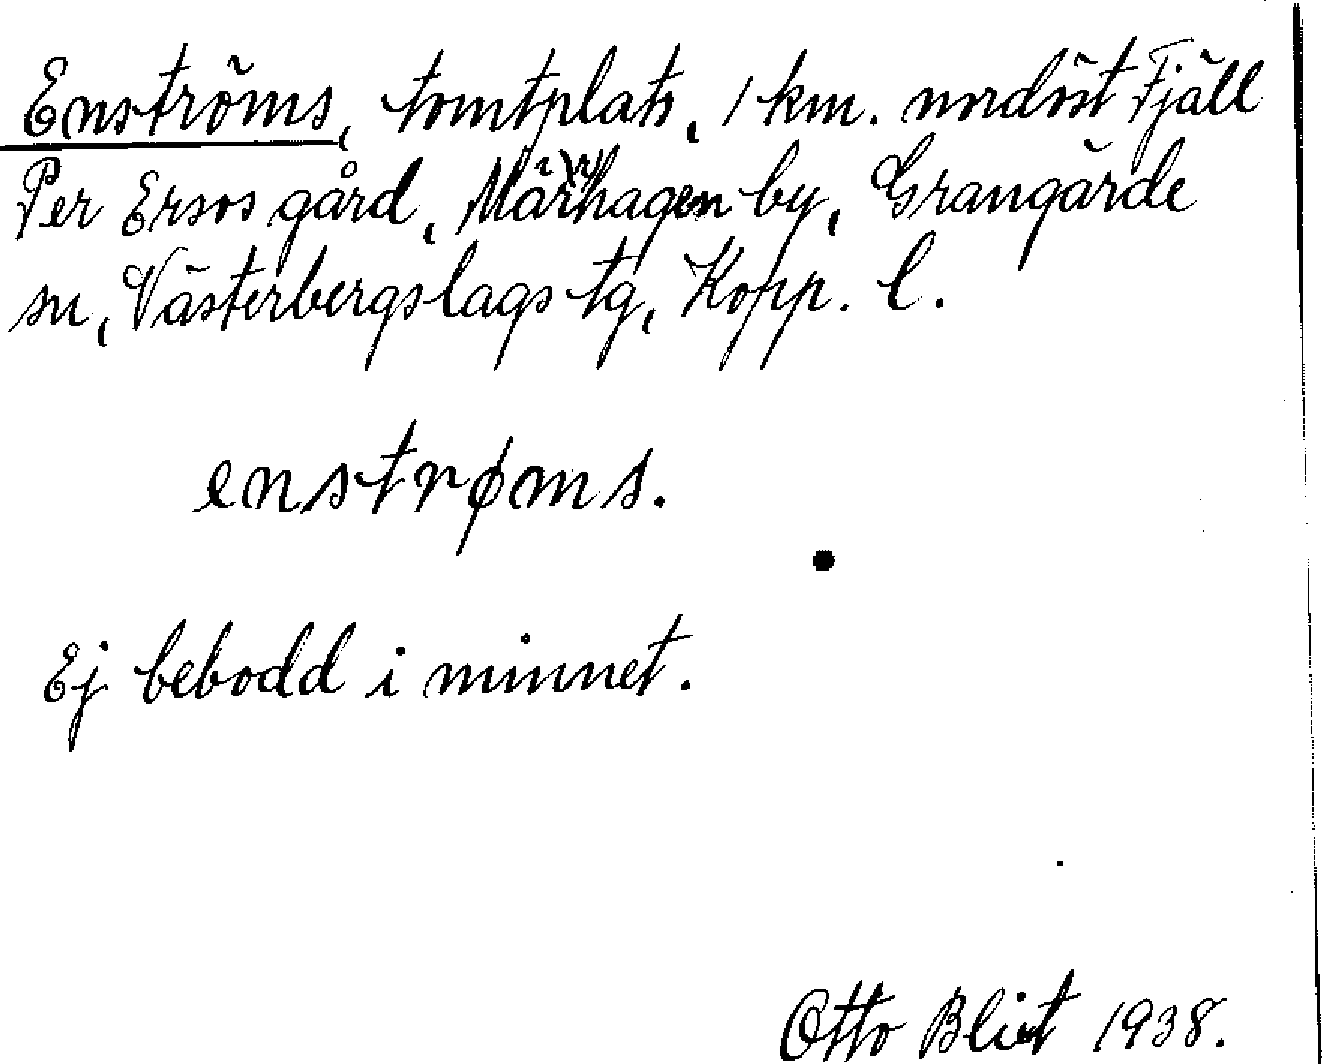 Enströms, tomtplats, 1 km. nordöst Fjäll
Per Ersos gård, Mårhagen by, Grangärde
sn, Västerbergslags tg, Kopp. l.
enstrøms.
Ej bebodd i minnet.
Otto Blixt 1938.